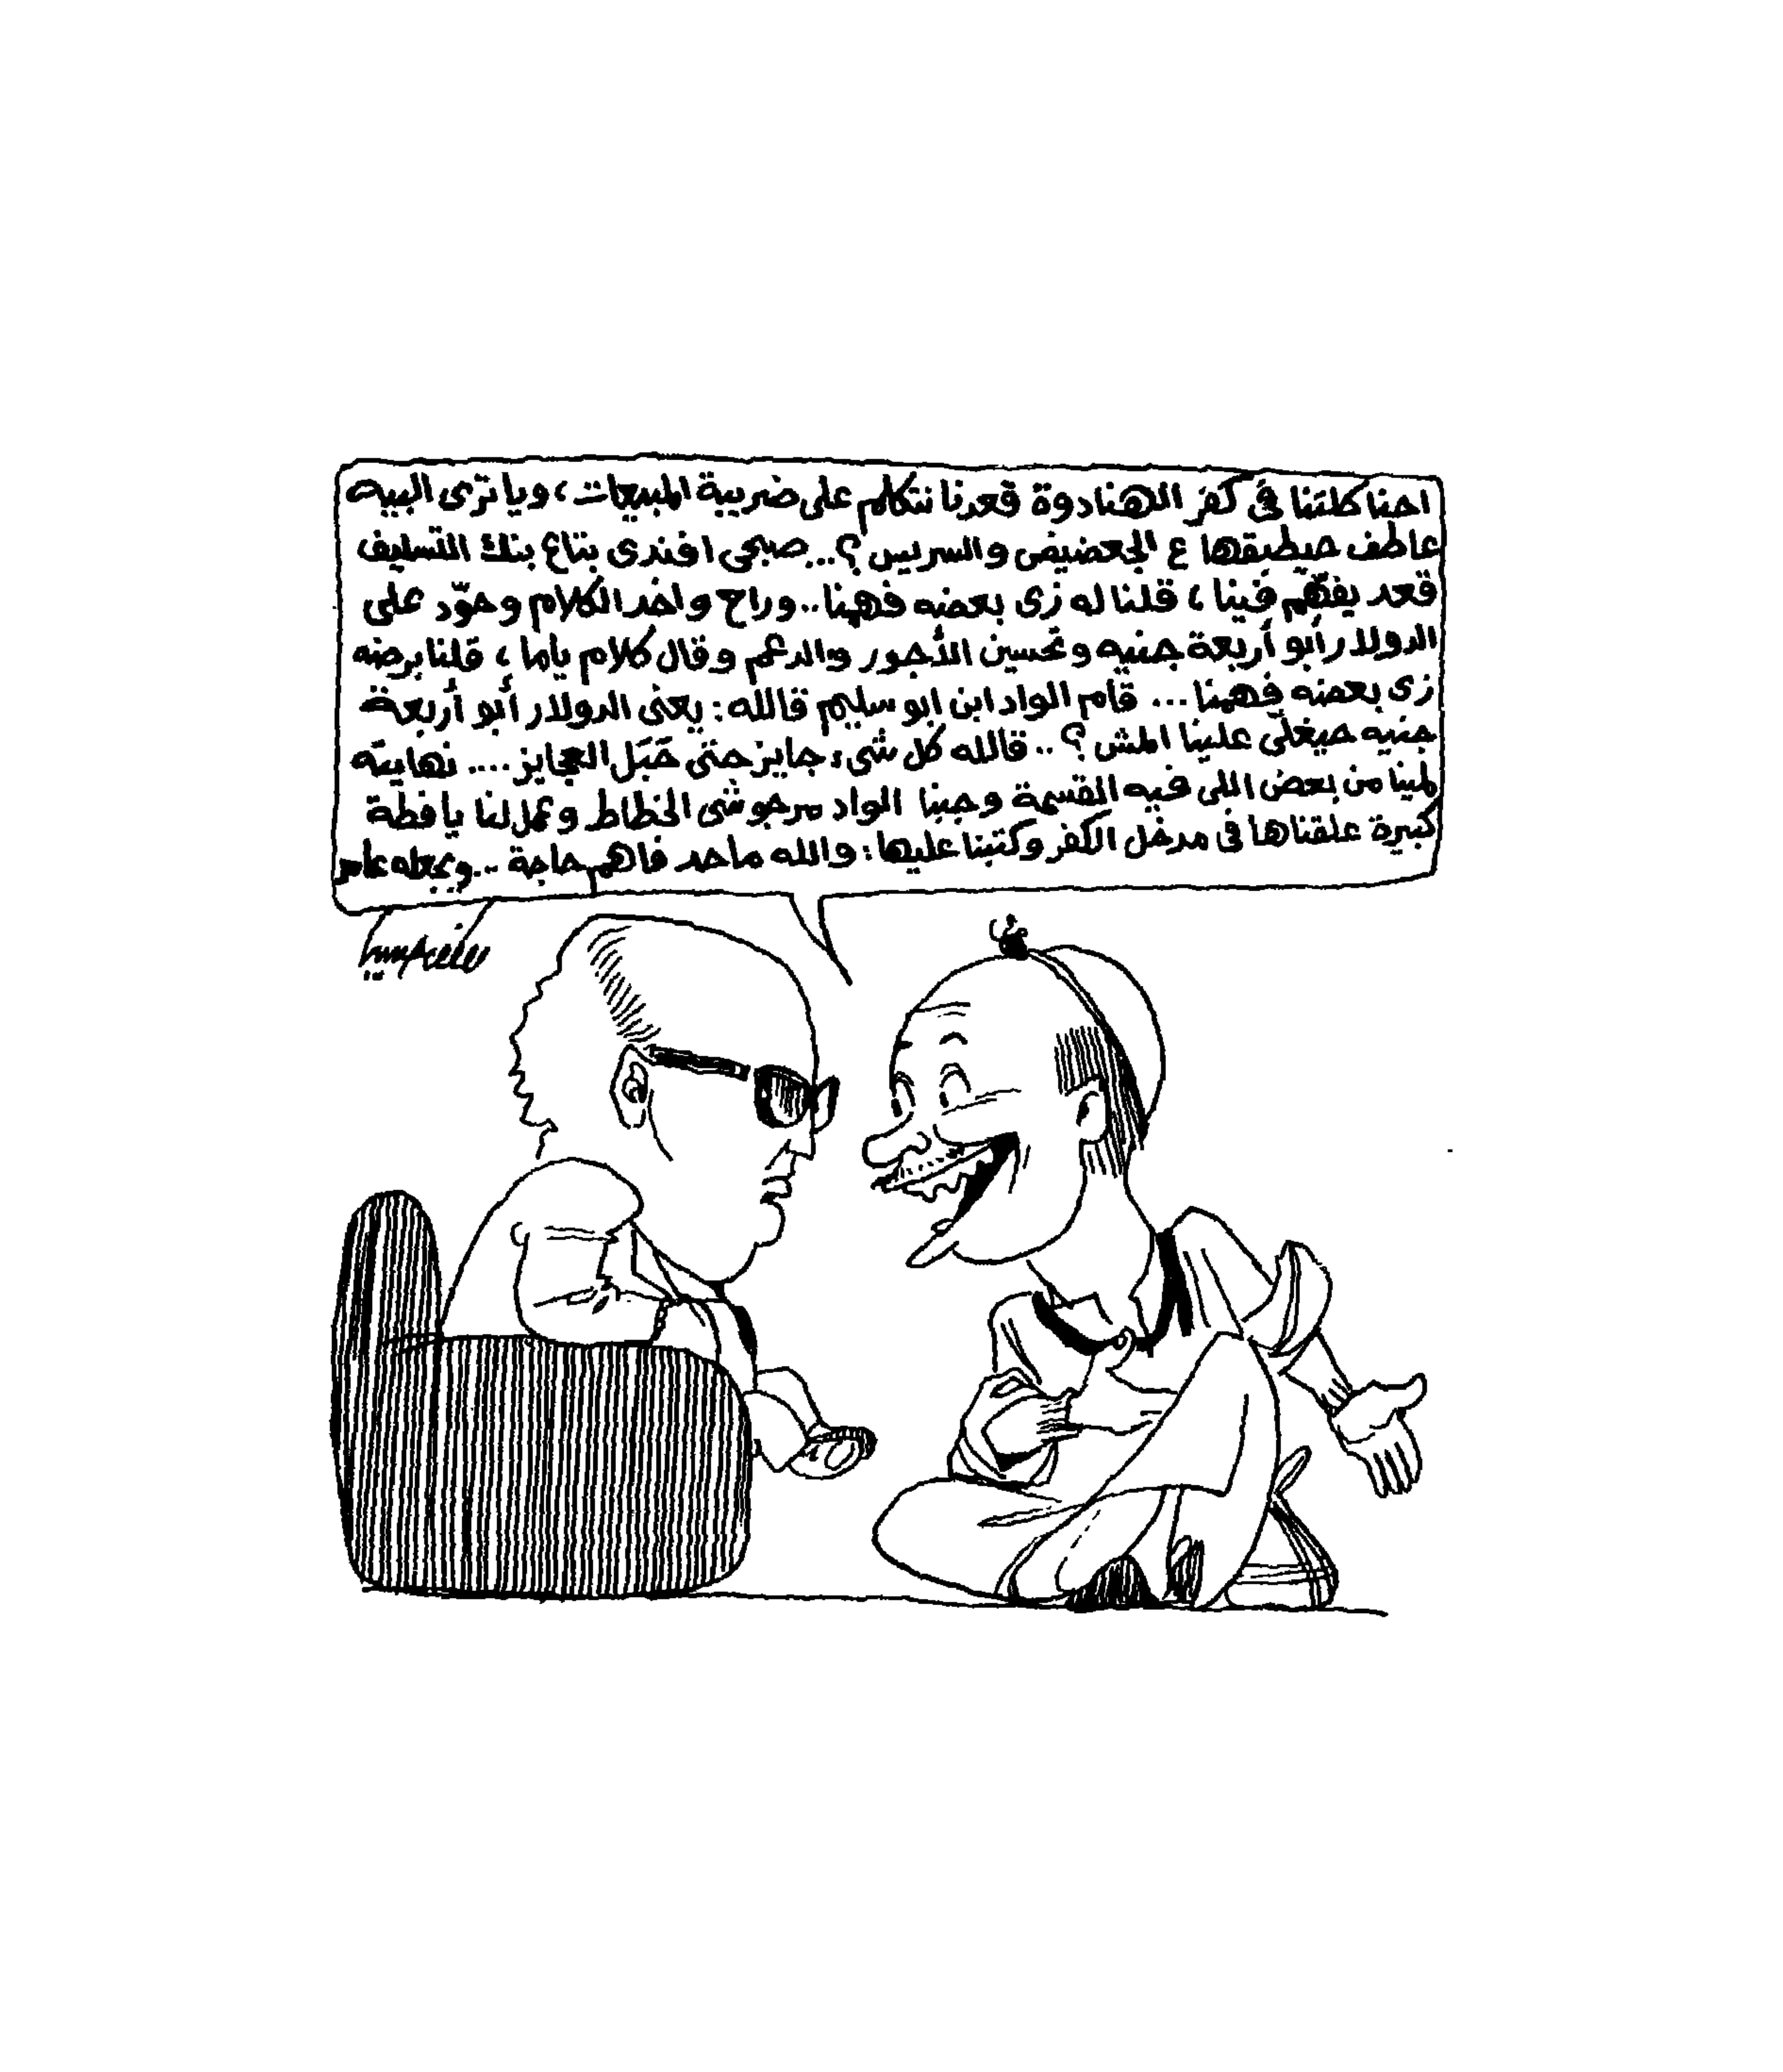 احنا كلتنا فى كفر الهنادوة قعدنا نتكلم على ضريبة المبيعات، ويا ترى البيه
عاطف حيطبقها ع الجعضيض والسريس؟... صبحى افندى بتاع بنك التسليف
قعد يفهّم فينا، قلنا له زى بعضه فهمنا.. وراح واخد الكلام وحوّد على
الدولار أبو أربعة جنيه وتحسين الأجور والدعم وقال كلام ياما، قلنا برضه
زى بعضه فهمنا... قام الواد ابن ابو سليم قالله: يعنى الدولار أبو أربعة
جنيه حيغلّى علينا المش؟.. قالله كل شىء جايز حتى حَبَل العجايز.... نهايته
لمينا من بعض اللى فيه القسمة وجبنا الواد مرجوشى الخطاط وعمل لنا يافطة
كبيرة علقناها فى مدخل الكفر وكتبنا عليها: والله ماحد فاهم حاجة.. ويجعله عامر